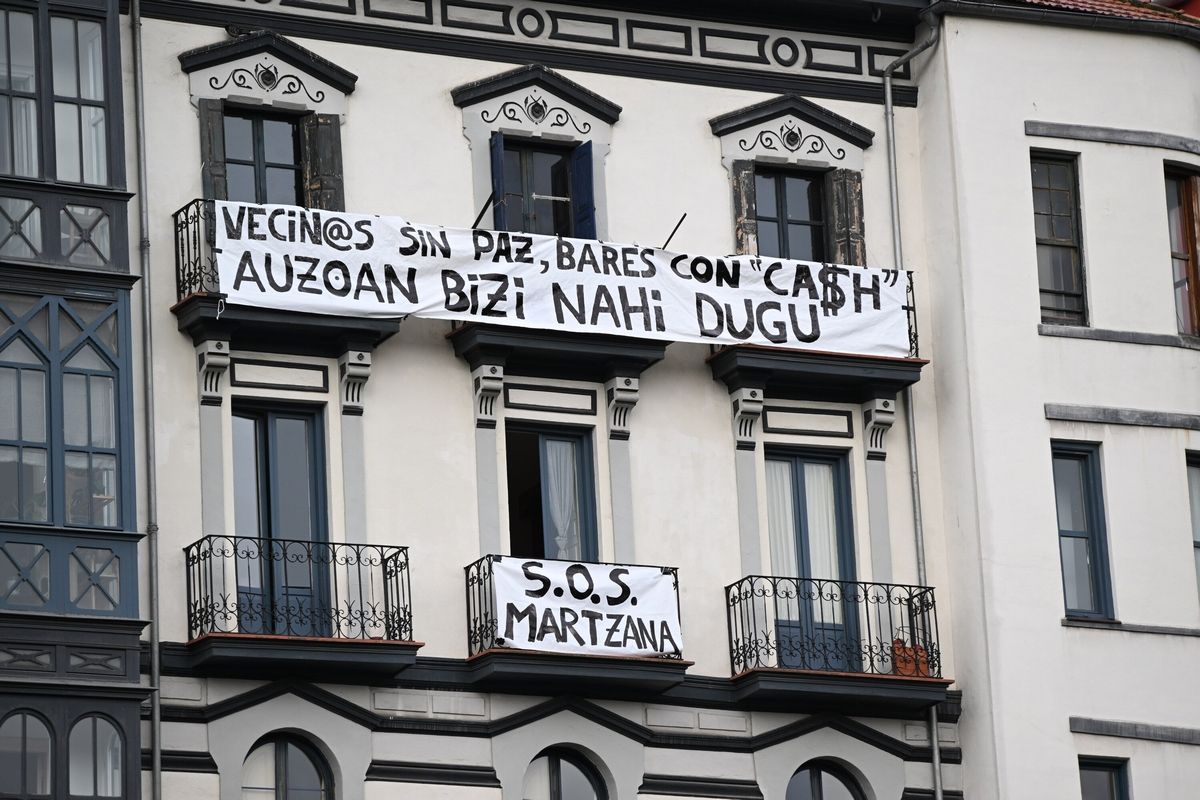 VECiN@S SiN PAZ, BARES CON "CA$H"
AUZOAN BiZi NAHi DUGU
S.O.S.
MARTZANA